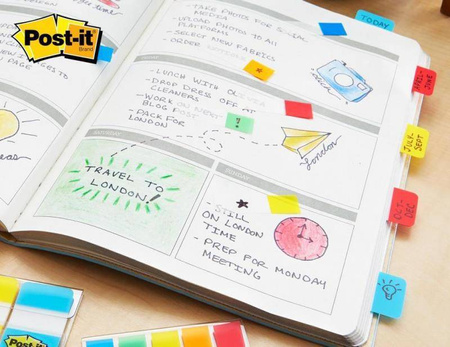 Post-it
BRAND
- TAKE PHOTOS FOR SOCIAL
MEDIA
- UPLOAD PHOTOS TO ALL
PLATFORMS
- SELECT NEW FABRICS
- ORDER
TODAY
- LUNCH WITH
- DROP DRESS OFF AT
CLEANERS
- WORK ON
BLOG POST
- PACK FOR
LONDON
London
SATURDAY
TRAVEL TO
LONDON!
SUNDAY
- STILL
ON LONDON
TIME
- PREP FOR MONDAY
MEETING
APRIL-JUNE
JULY-
SEPT
OCT-
DEC
Post-it